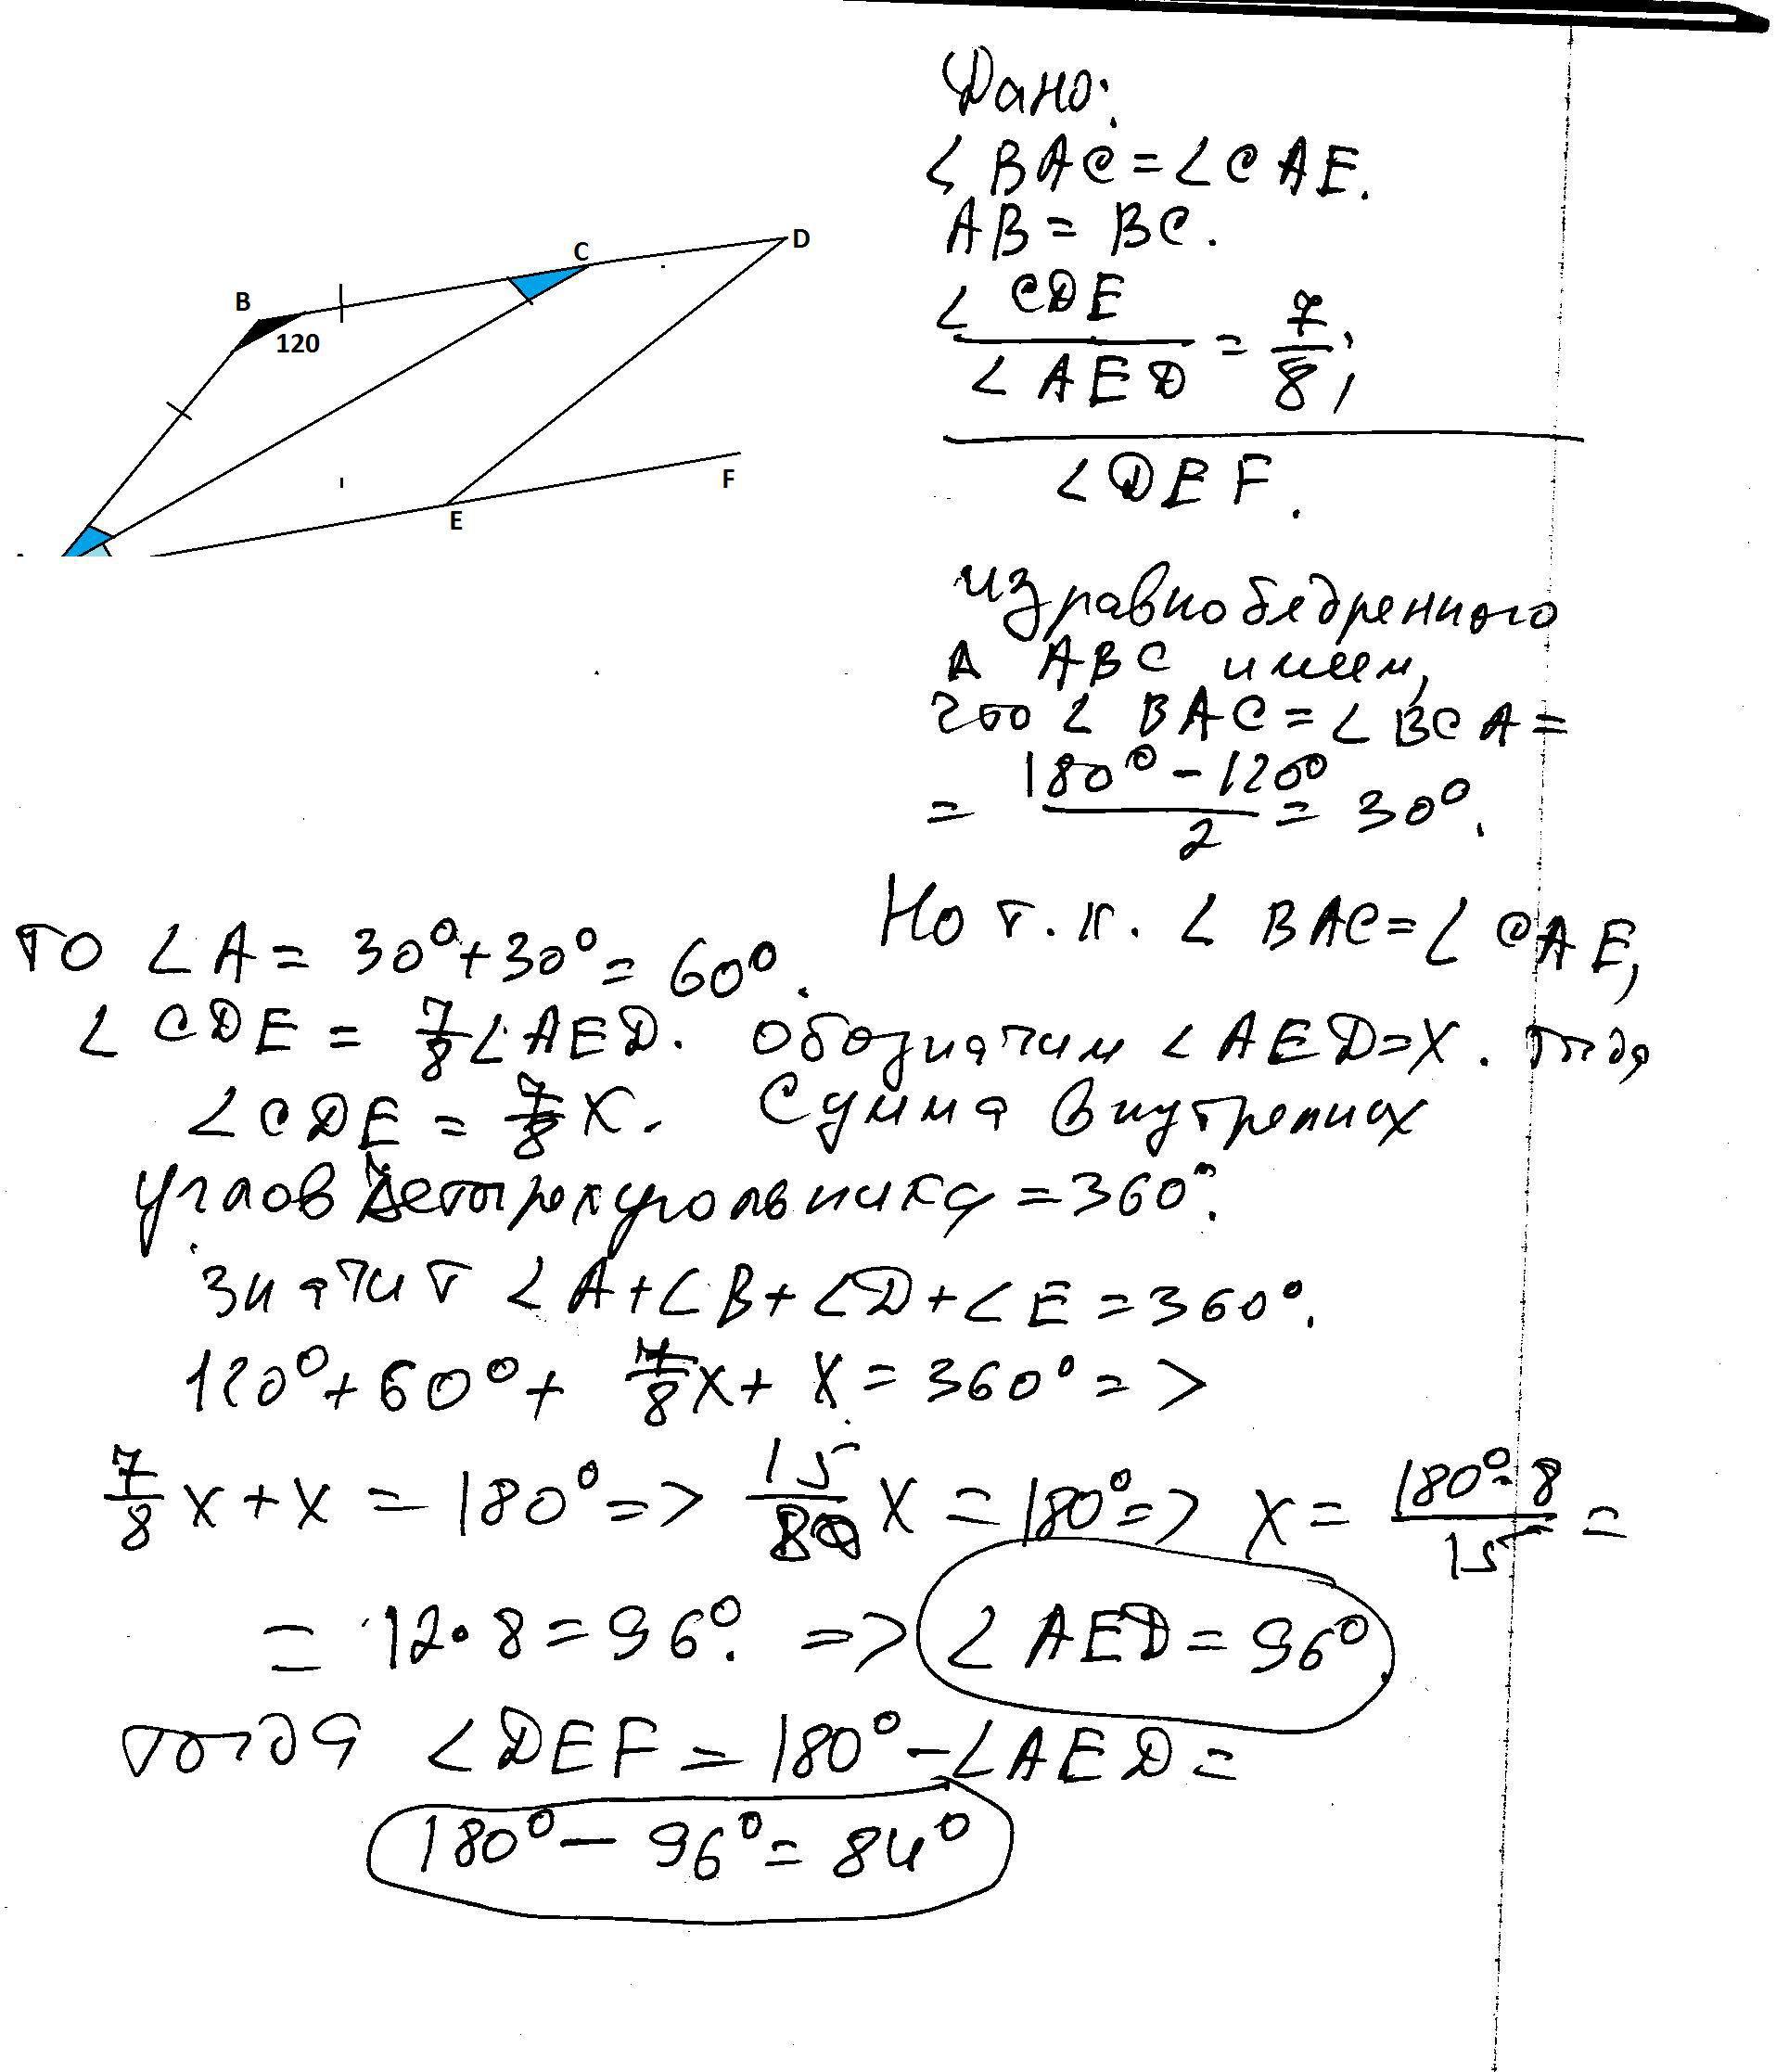 B
C
D
120
E
F
Дано:
∠ BAC = ∠ CAE.
AB = BC.
∠ CDE / ∠ AED = 7/8;
∠ DEF.
из равнобедренного
Δ ABC имеем,
что ∠ BAC = ∠ BCA =
= 180° - 120° / 2 = 30°.
Но т.к. ∠ BAC = ∠ CAE,
то ∠ A = 30° + 30° = 60°.
∠ CDE = 7/8 ∠ AED. обозначим ∠ AED = X. тогда
∠ CDE = 7/8 X. Сумма внутренних
углов четырехугольника = 360°.
значит ∠ A + ∠ B + ∠ D + ∠ E = 360°.
120° + 60° + 7/8 X + X = 360° =>
7/8 X + X = 180° => 15/8 X = 180° => X = 180°·8 / 15 =
= 12·8 = 96°. => ∠ AED = 96°
тогда ∠ DEF = 180° - ∠ AED =
180° - 96° = 84°